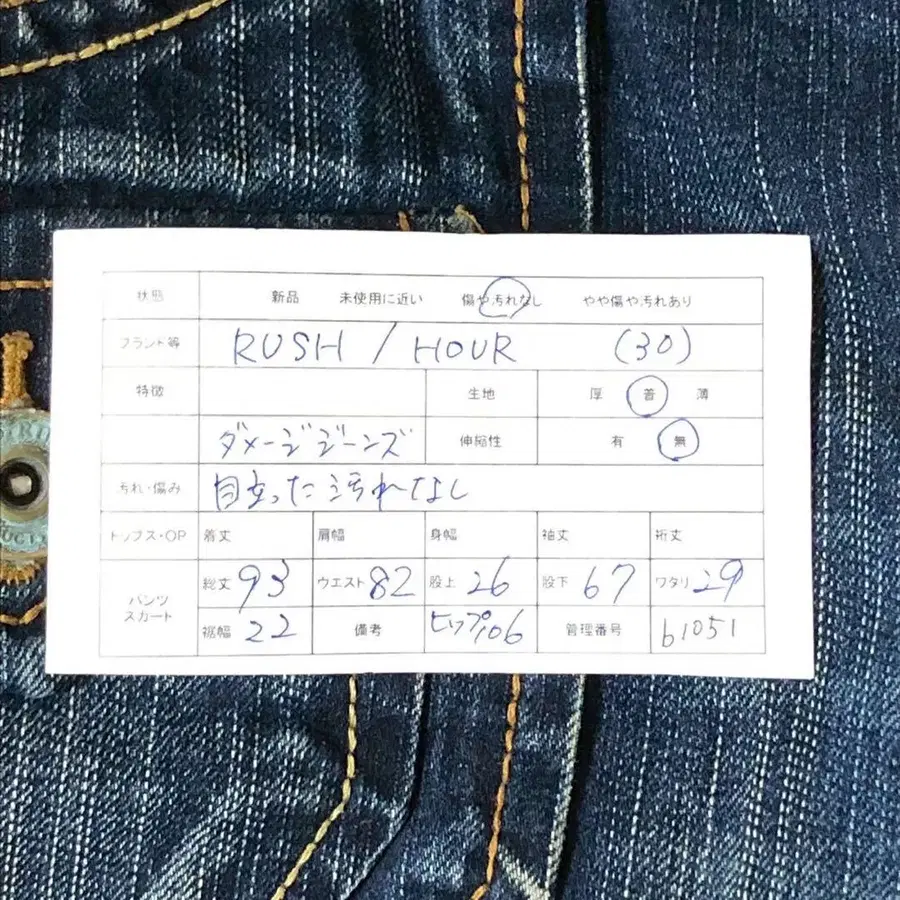 状態 新品 未使用に近い 傷や汚れなし やや傷や汚れあり
ブランド等 RUSH / HOUR (30)
特徴 生地 厚 普 薄
ダメージジーンズ 伸縮性 有 無
汚れ・傷み 目立った汚れなし
トップス・OP 着丈 肩幅 身幅 袖丈 裄丈
パンツ
スカート
総丈 93 ウエスト 82 股上 26 股下 67 ワタリ 29
裾幅 22 備考 ヒップ106 管理番号 b1051